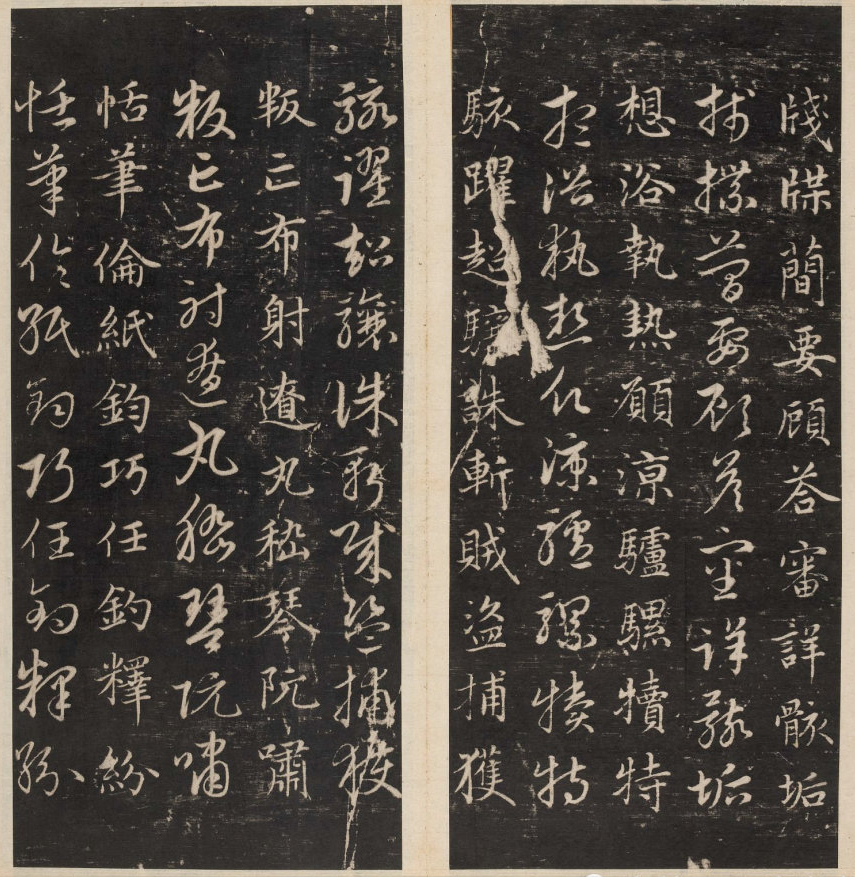 牋牒簡要顧答審詳骸垢
牋牒簡要顧答審詳骸垢
想浴執熱願涼驢騾犢特
想浴執熱願涼驢騾犢特
駭躍超驤誅斬賊盜捕獲
駭躍超驤誅斬賊盜捕獲
叛亡布射遼丸嵇琴阮嘯
叛亡布射遼丸嵇琴阮嘯
恬筆倫紙鈞巧任釣釋紛
恬筆倫紙鈞巧任釣釋紛